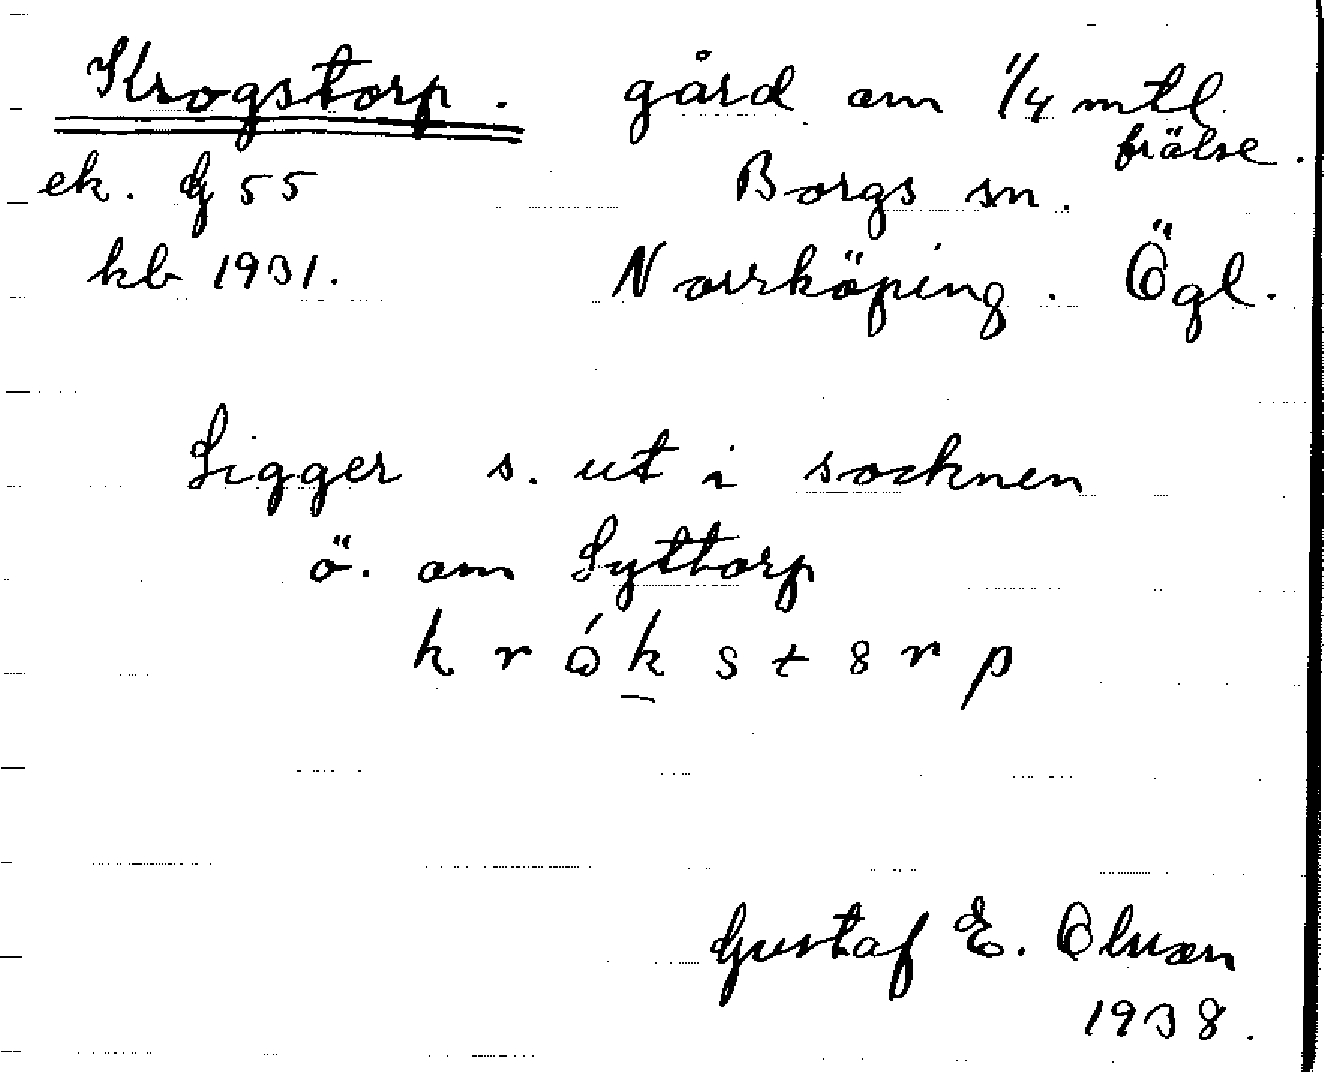 Krogstorp. gård om 1/4 mtl
frälse.
ek. G 55 Borgs sn.
kb 1931. Norrköping. Ögl.
Ligger s. ut i socknen
ö. om Lyttorp
k r ó k s t 8 r p
Gustaf E. Olsson
1938.